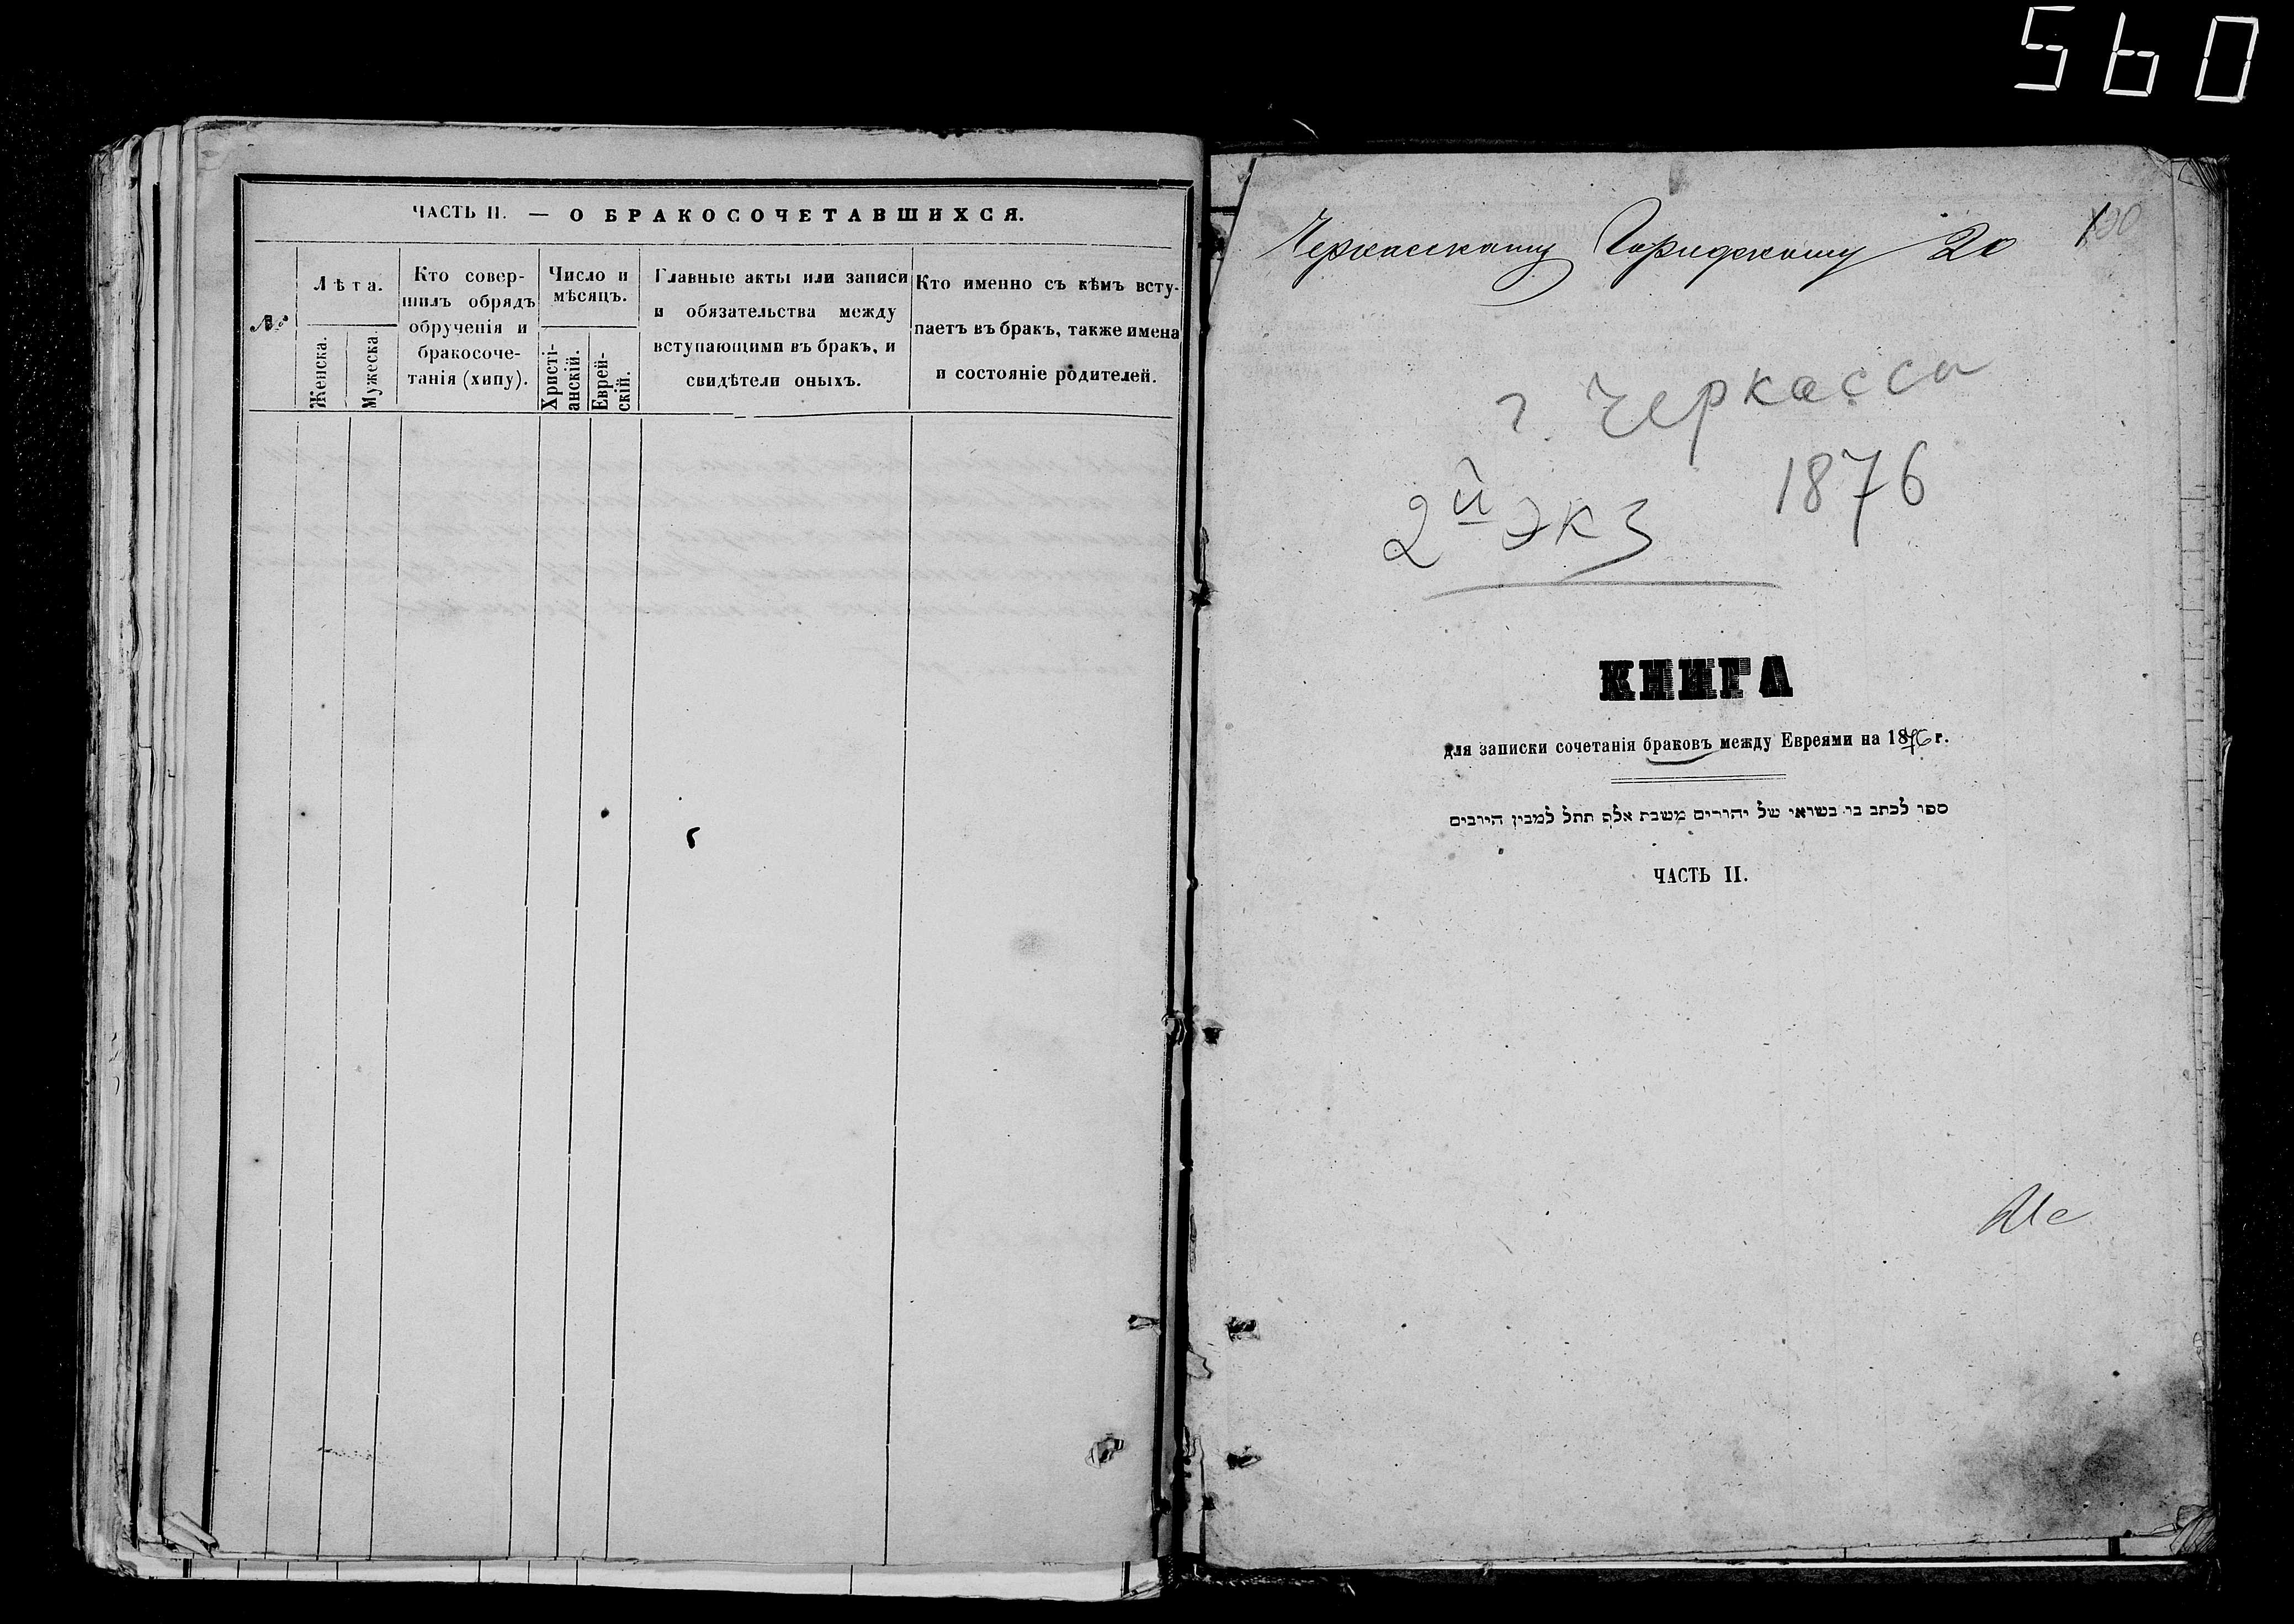 560
ЧАСТЬ II. — О БРАКОСОЧЕТАВШИХСЯ.
№
Лѣта.
Женска.
Мужеска.
Кто совер-
шилъ обрядъ
обрученія и
бракосоче-
танія (хипу).
Число и
мѣсяцъ.
Христі-
анскій.
Еврей-
скій.
Главные акты или записи
и обязательства между
вступающими въ бракъ, и
свидѣтели оныхъ.
Кто именно съ кѣмъ всту-
паетъ въ бракъ, также имена
и состояніе родителей.
Черкасскому 20
г. Черкассы
1876
2й экз
КНИГА
для записки сочетанія браковъ между Евреями на 1876 г.
ספר לכתב בו נשואי של יהודים משנת אלף תתל למנין היונים
ЧАСТЬ II.